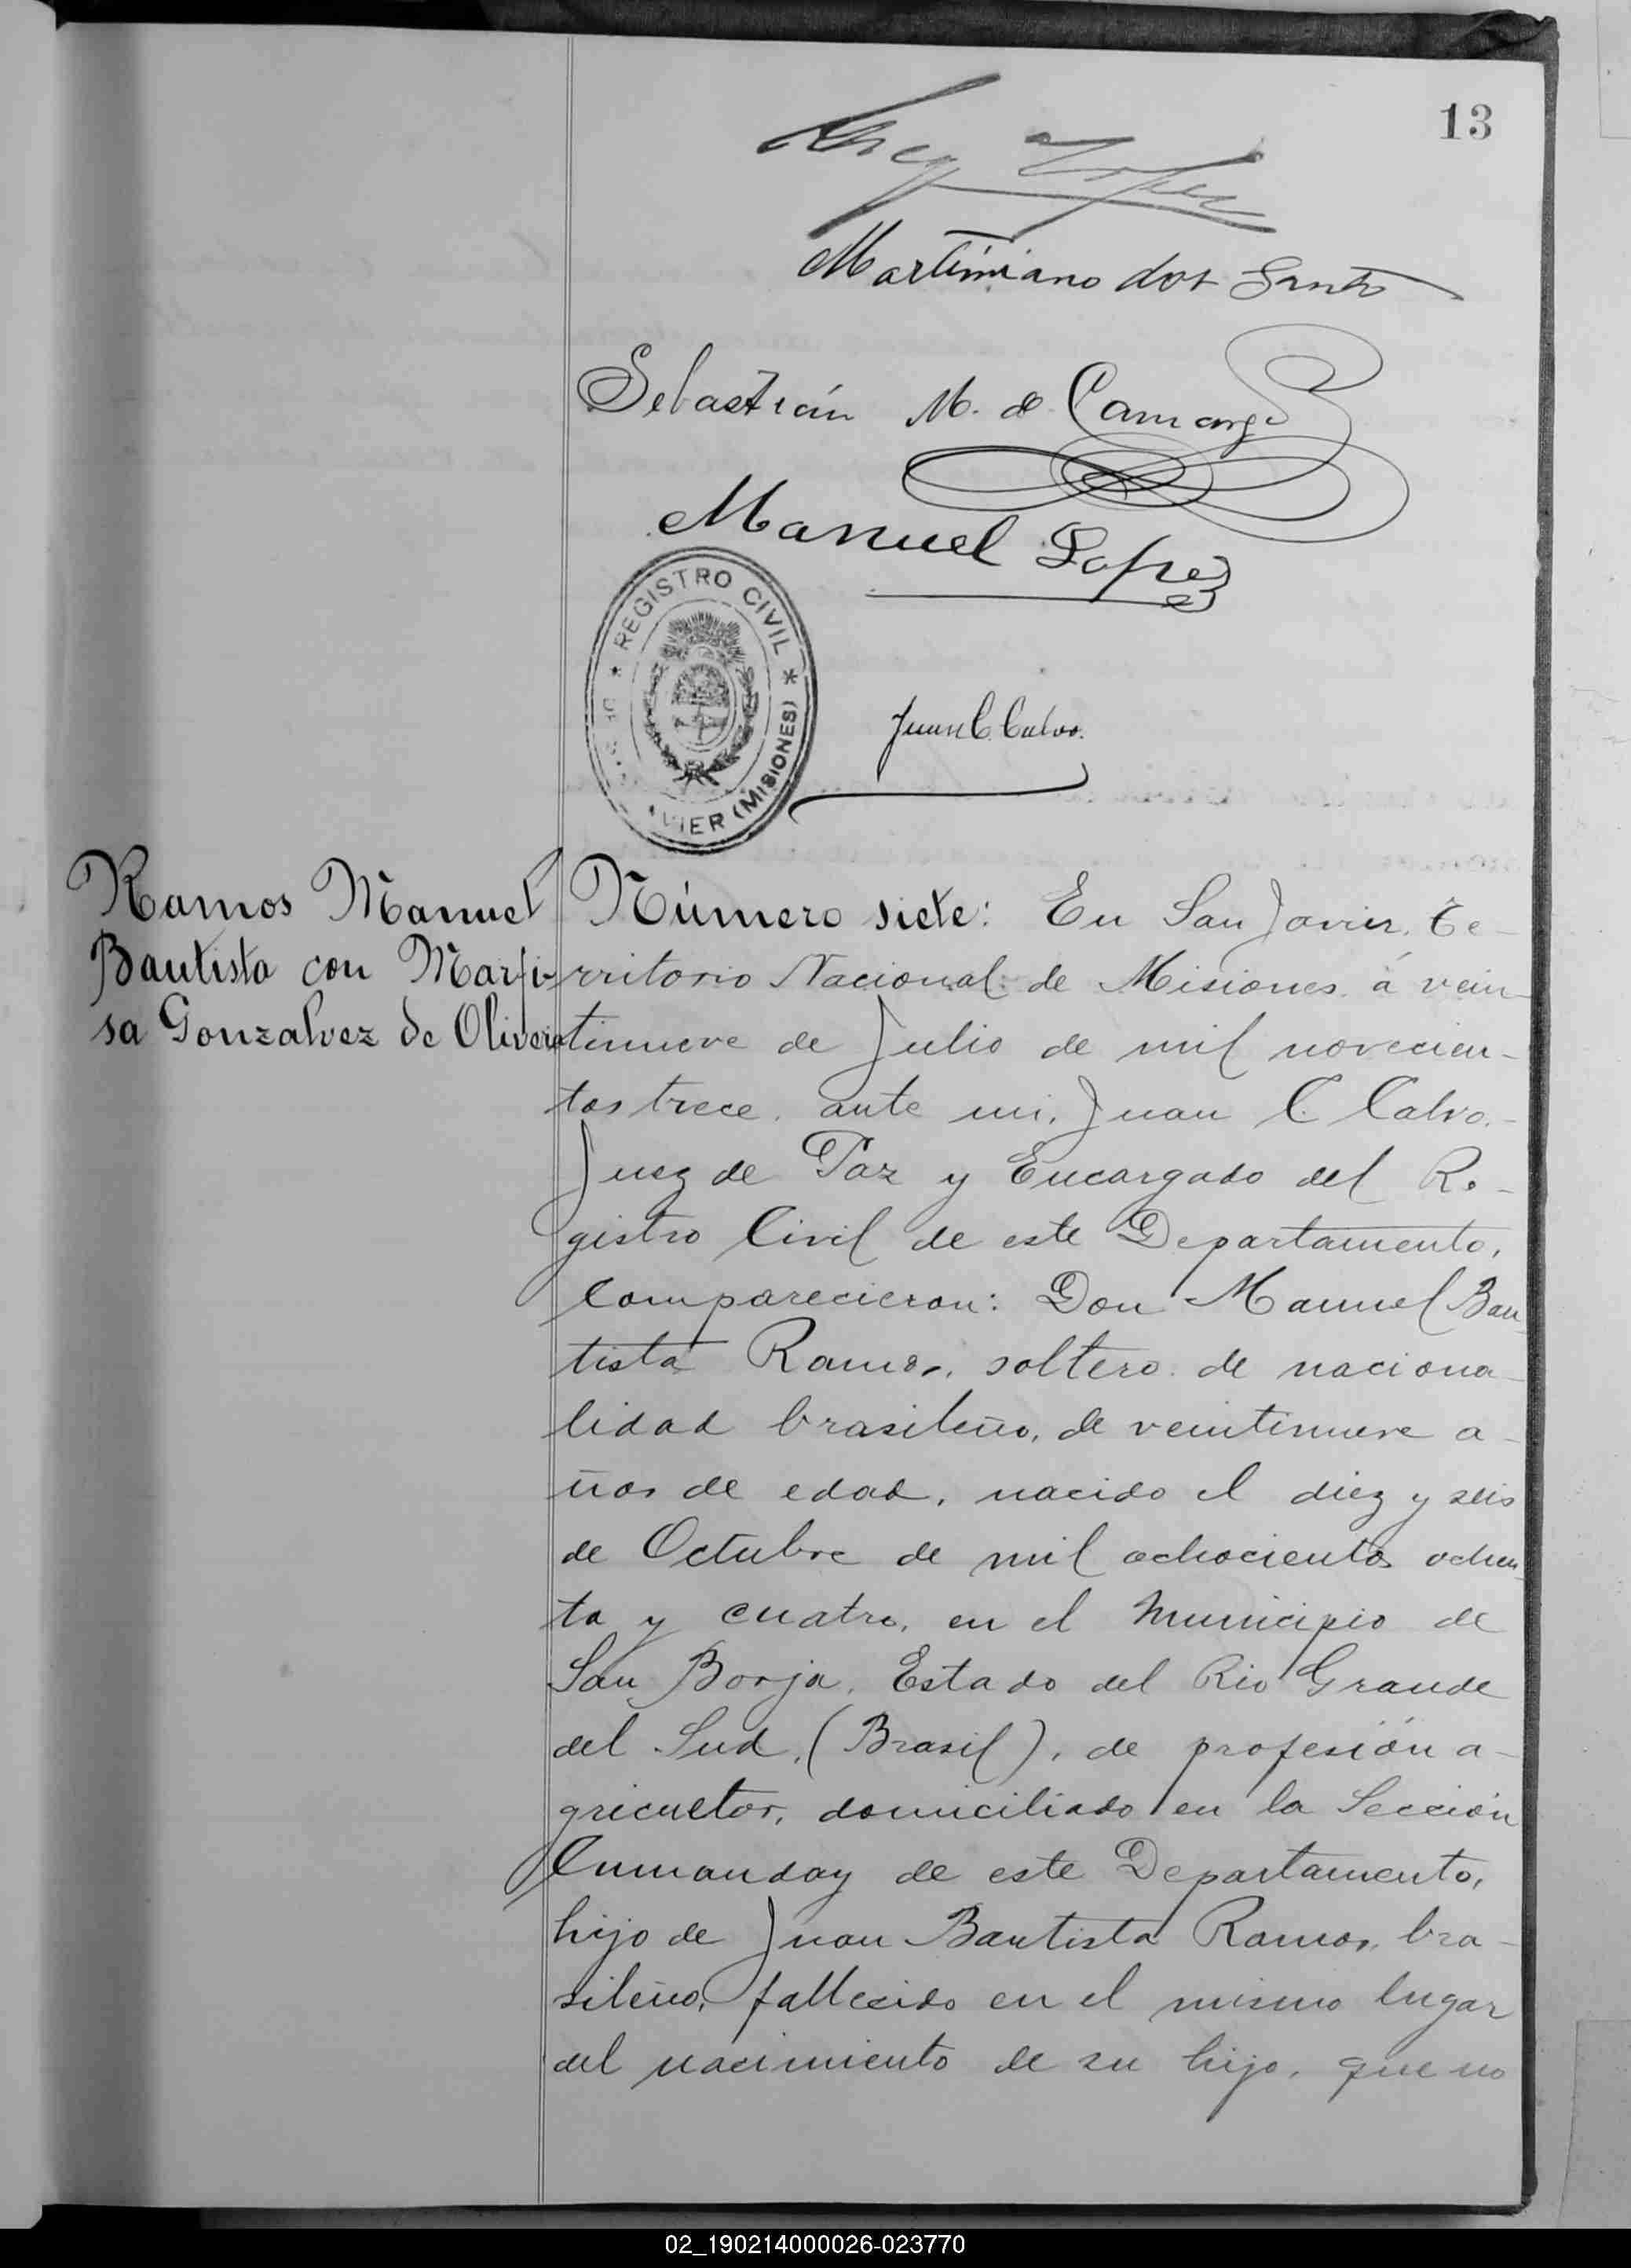 13
Lopez
Martimiano dos Santo
Sebastián M. de Camargo
Manuel Lopez
* REGISTRO CIVIL *
VIER (MISIONES)
Juan C. Calvo.
Ramos Manuel
Bautista con Marfi-
sa Gonzalvez de Olivera
Número siete: En San Javier, Te-
rritorio Nacional de Misiones á vein-
tinueve de Julio de mil novecien-
tos trece, ante mi, Juan C. Calvo.-
Juez de Paz y Encargado del Re-
gistro Civil de este Departamento,
Comparecieron: Don Manuel Bau-
tista Ramos, soltero de naciona-
lidad brasileño, de veintinueve a-
ños de edad, nacido el diez y seis
de Octubre de mil ochocientos ochen-
ta y cuatro, en el Municipio de
San Borja, Estado del Rio Grande
del Sud, (Brasil), de profesión a-
gricultor, domiciliado en la Sección
Cumanday de este Departamento,
hijo de Juan Bautista Ramos, bra-
sileño, fallecido en el mismo lugar
del nacimiento de su hijo, que no
02_190214000026-023770